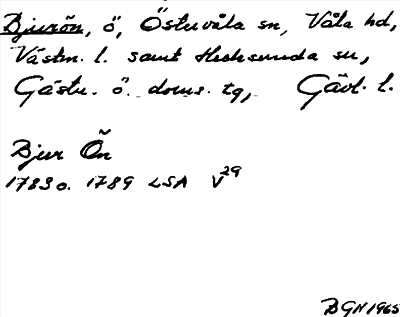 Bjurön, ö, Östervåla sn, Våla hd,
Västm. l. samt Hedesunda sn,
Gästr. ö. doms. tg, Gävl. l.
Bjur Ön
1783 o. 1789 LSA V29
BGN 1965